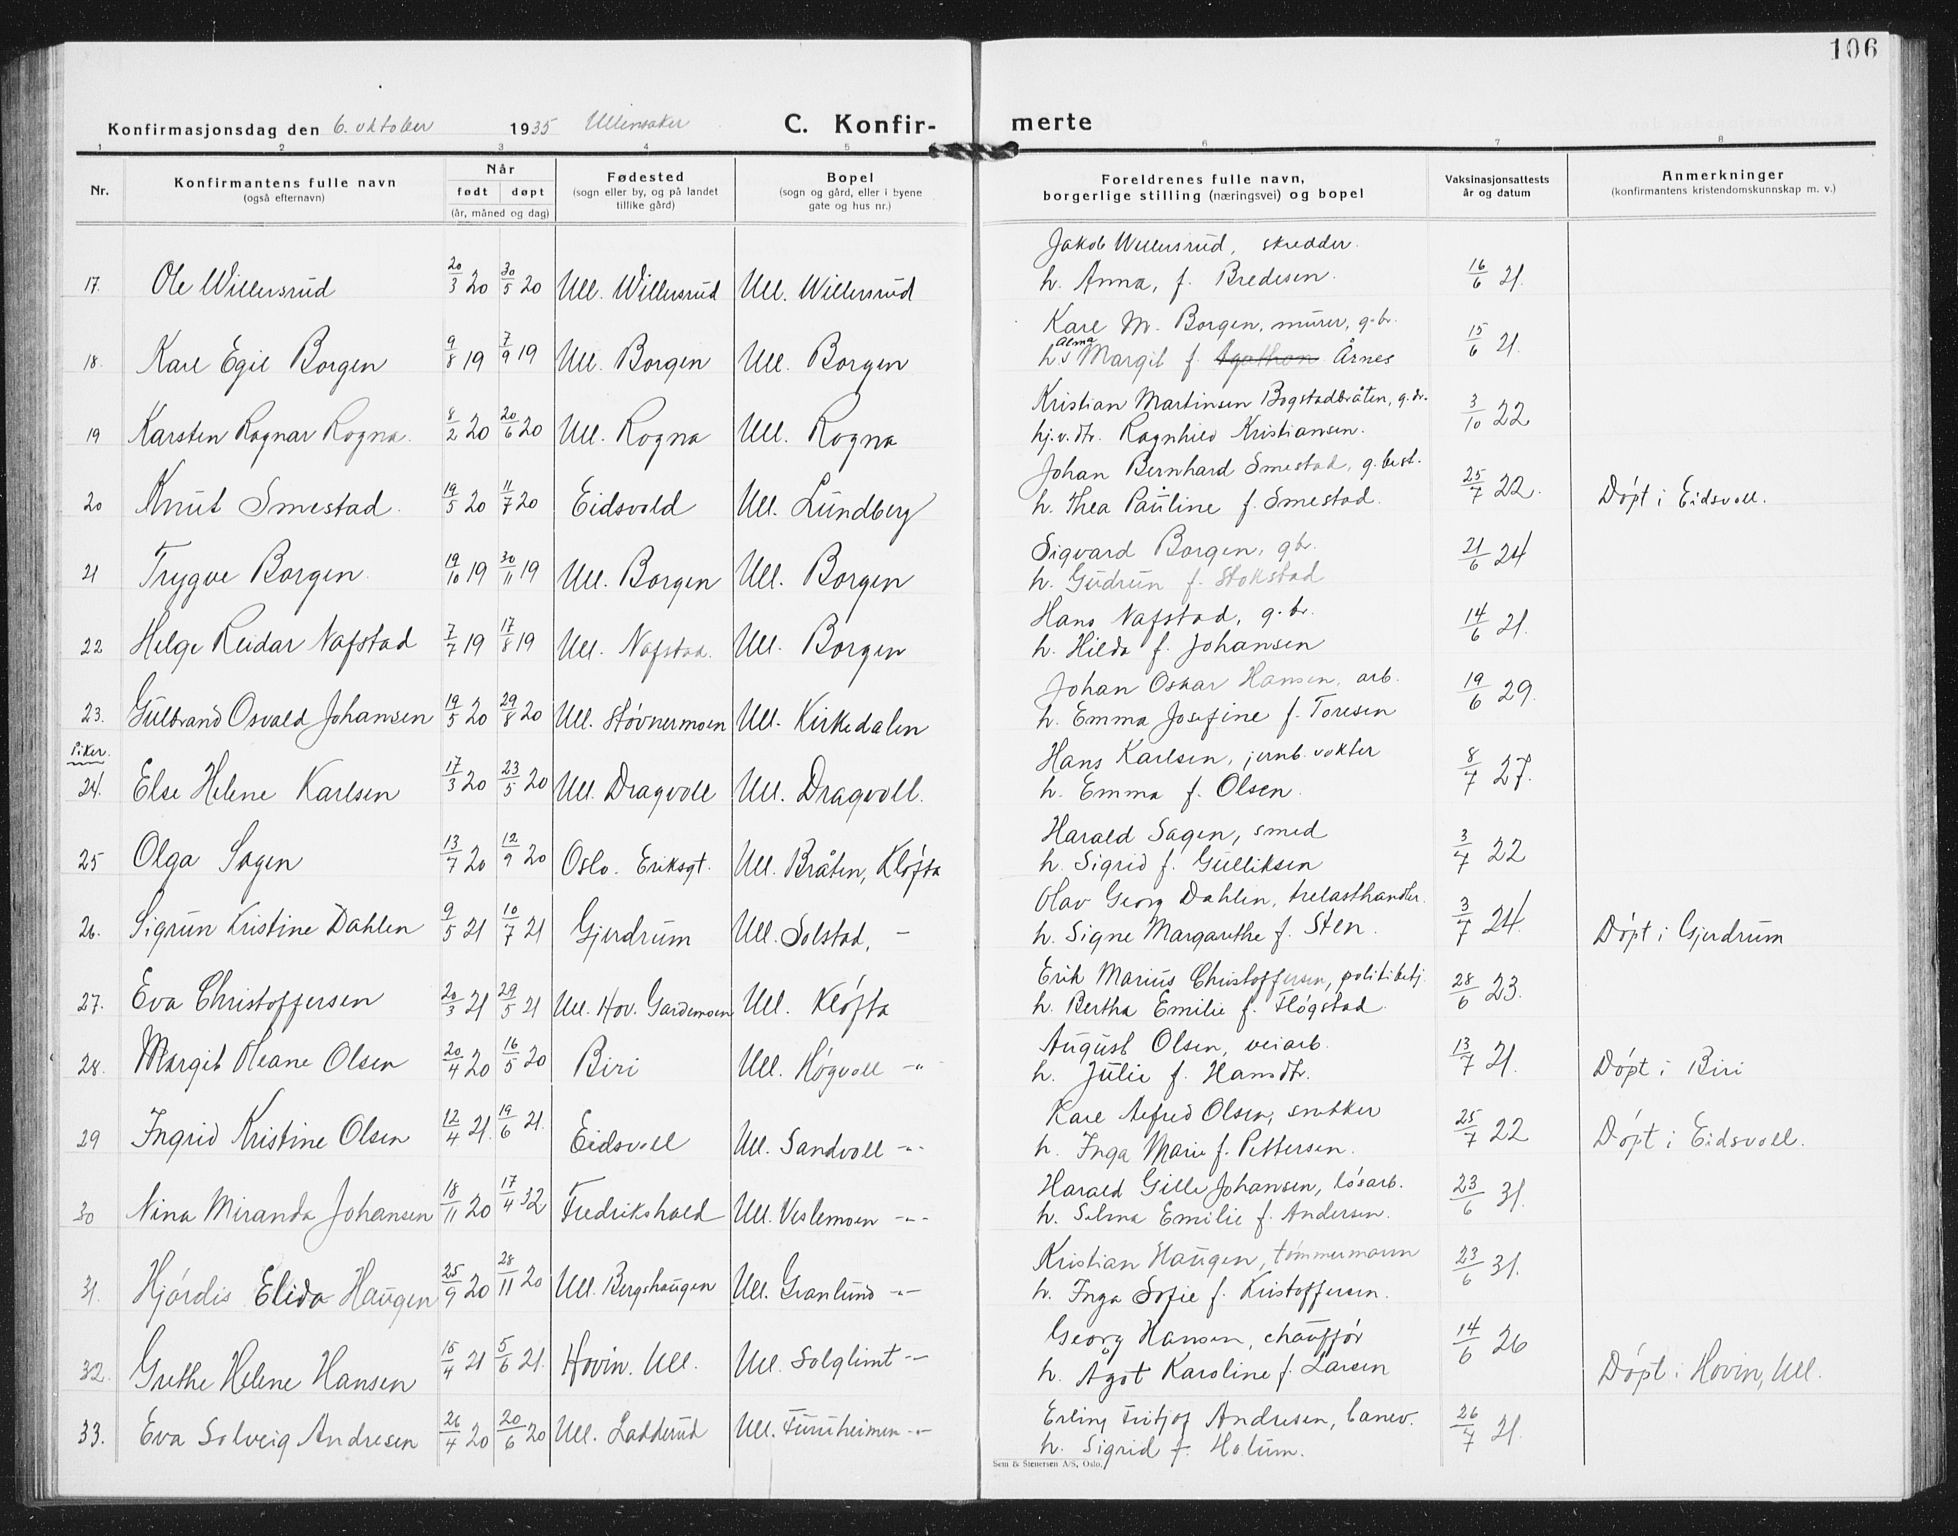 106
Konfirmasjonsdag den 6. oktober 1935 Ullensaker C. Konfir- merte
1 2 3 4 5 6 7 8
Nr. Konfirmantens fulle navn (også efternavn) Når født døpt (år, måned og dag) Fødested (sogn eller by, og på landet tillike gård) Bopel (sogn og gård, eller i byene gate og hus nr.) Foreldrenes fulle navn, borgerlige stilling (næringsvei) og bopel Vaksinasjonsattests år og datum Anmerkninger (konfirmantens kristendomskunnskap m. v.)
Jakob Willersrud, skredder.
17. Ole Willersrud 20/3 20 30/5 20 Ull. Willersrud Ull. Willersrud h. Anna, f. Bredesen. 16/6 21.
Karl M. Borgen, murer, g.br.
18. Karl Egil Borgen 9/8 19 7/9 19 Ull. Borgen Ull. Borgen h. Alma Margit f. Agathon Årnes 15/6 21.
Kristian Martinsen Bogstadbråten, g.br.
19 Karsten Ragnar Rogna. 8/2 20 20/6 20 Ull. Rogna Ull. Rogna hj.v.dtr. Ragnhild Kristiansen. 3/10 22
Johan Bernhard Smestad, g.best.
20 Knut Smestad. 19/5 20 11/7 20 Eidsvold Ull. Lundberg h. Thea Pauline f. Smestad. 25/7 22. Døpt i Eidsvoll.
Sigvard Borgen, gbr.
21 Trygve Borgen. 19/10 19 30/11 19 Ull. Borgen Ull. Borgen h. Gudrun f. Stokstad 21/6 24
Hans Nafstad, g.br.
22 Helge Reidar Nafstad 7/7 19 17/8 19 Ull. Nafstad. Ull. Borgen h. Hilda f. Johansen 14/6 21.
Johan Oskar Hansen, arb.
23. Gulbrand Osvald Johansen 19/5 20 29/8 20 Ull. Støvnermoen Ull. Kirkedalen h. Emma Josefine f. Toresen 19/6 29.
Piker.
Hans Karlsen, jernb.vokter
24. Else Helene Karlsen 17/3 20 23/5 20 Ull. Dragvoll Ull. Dragvoll. h. Emma f. Olsen. 8/7 27.
Harald Sagen, smed
25 Olga Sagen 13/7 20 12/9 20 Oslo. Eriksgt. Ull. Bråten, Kløfta h. Sigrid f. Gulliksen 3/7 22
Olav Georg Dahlen, trelasthandler.
26. Sigrun Kristine Dahlen 9/5 21 10/7 21 Gjerdrum Ull. Solstad, - h. Signe Margarethe f. Sten. 3/7 24. Døpt i Gjerdrum
Erik Marius Christoffersen, politibetj.
27. Eva Christoffersen 20/3 21 29/5 21 Ull. Hov. Gardemoen Ull. Kløfta h. Bertha Emilie f. Fløgstad. 28/6 23.
August Olsen, veiarb.
28. Margit Oleane Olsen 20/4 20 16/5 20 Biri Ull. Høgvoll -"- h. Julie f. Hansdtr. 13/7 21. Døpt i Biri
Karl Alfred Olsen, snekker
29 Ingrid Kristine Olsen 12/4 21. 19/6 21. Eidsvoll Ull. Sandvoll -"- h. Inga Marie f. Pettersen. 25/7 22 Døpt i Eidsvoll.
Harald Gille Johansen, løsarb.
30 Nina Miranda Johansen 18/11 20 17/4 32 Fredrikshald Ull. Veslemoen -"- h. Selma Emilie f. Andersen. 23/6 31.
Kristian Haugen, tømmermann
31. Hjørdis Elida Haugen 25/9 20 28/11 20 Ull. Bergshaugen Ull. Granlund -"- h. Inga Sofie f. Kristoffersen. 23/6 31.
Georg Hansen, chauffør
32. Grethe Helene Hansen 15/4 21 5/6 21. Hovin. Ull. Ull. Solglimt -"- h. Agot Karoline f. Larsen 14/6 26 Døpt i Hovin, Ull.
Erling Fritjof Andresen, banev.
33. Eva Solveig Andresen 26/4 20 20/6 20 Ull. Ladderud Ull. Furuheimen -"- h. Sigrid f. Holum. 26/7 21.
Sem & Stenersen A/S, Oslo.